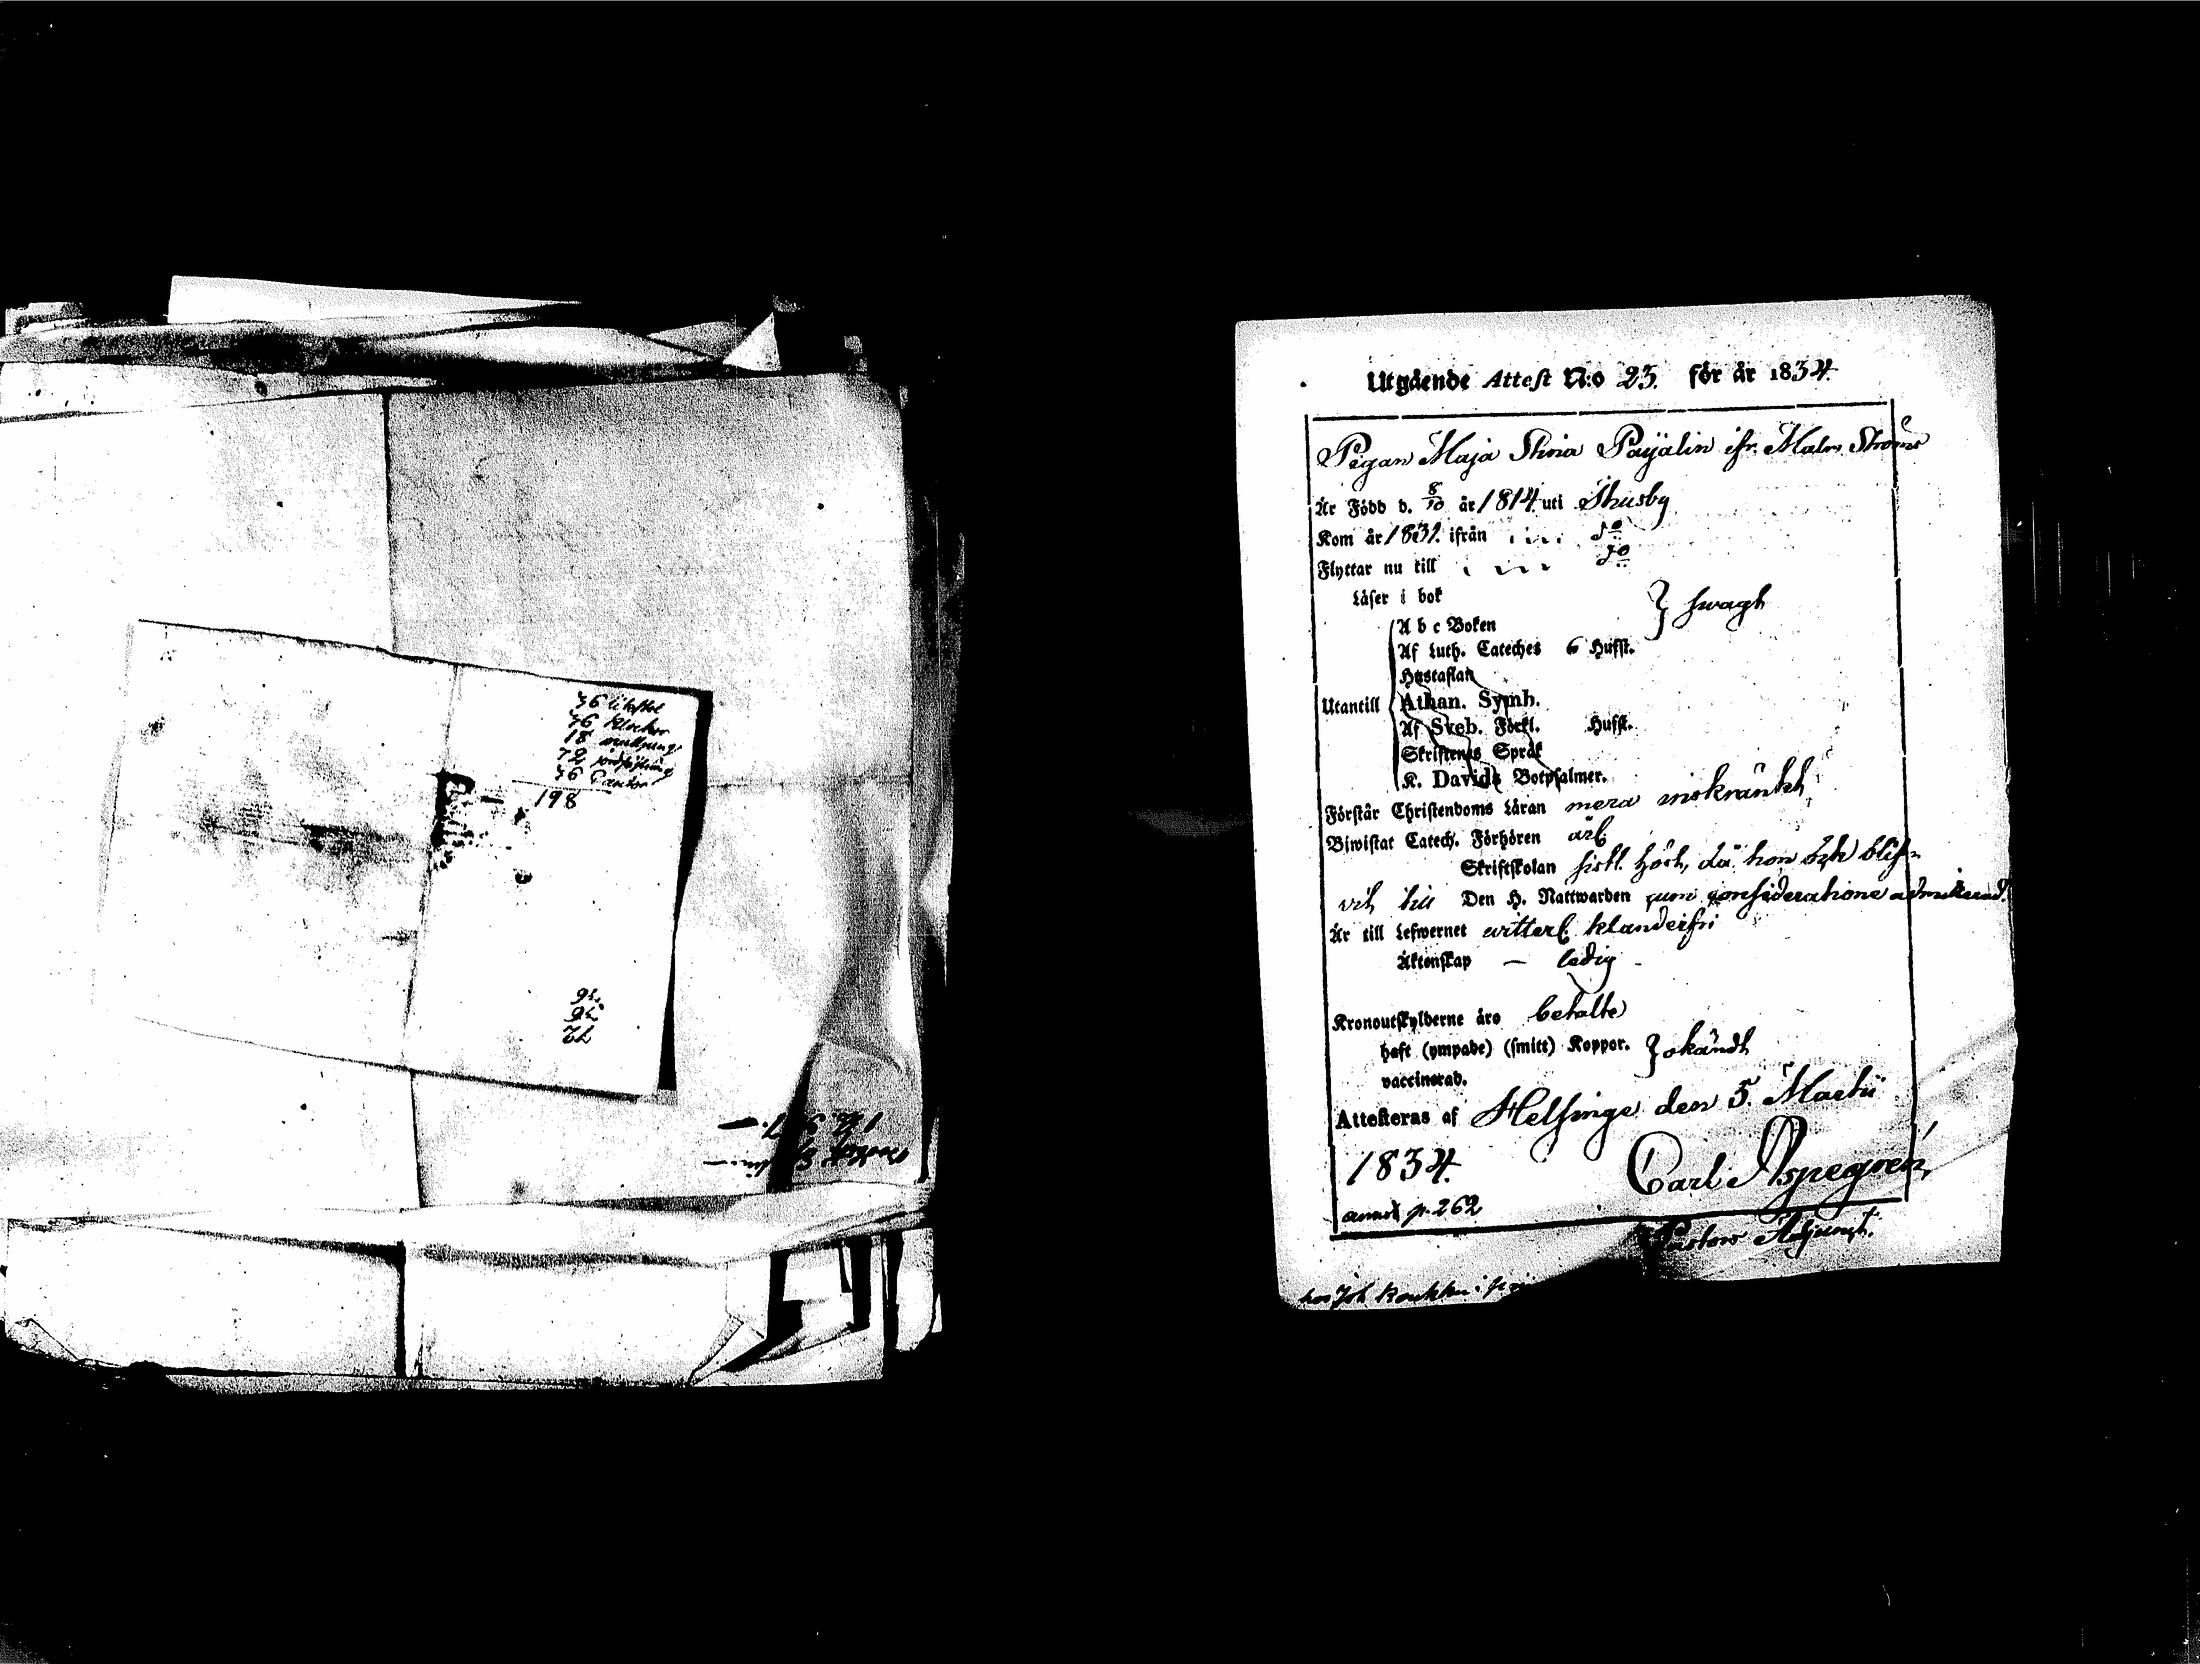 36
36 Klockar
18
72
36 Cantor
198
36
36
72
Utgående Attest N:o 23. för år 1834.
Pigan Maja Stina Payalin ifr. Malm Ströms
Är Född d. 8/10 år 1814 uti Thusby
Kom år 1831. ifrån do
Flyttar nu till do
Läser i bok } swagt
A b c Boken
Af Luth. Cateches 6 Hufst.
Hustaflan
Utantill Athan. Symb.
Af Sveb. Förkl. Hufst.
Skriftenes Språk
K. Davids Botpsalmer.
Förstår Christendoms Läran mera inskränkt
Biwistat Catech. Förhören årl.
Skriftskolan sistl. höst, då hon ock blifv
vit till Den H. Nattwarden cum consideratione admitterad.
Är till Lefwernet witterl. klanderfri
Äktenskap — ledig
Kronoutskylderne äro betalte
haft (ympade) (smitt) Koppor. } okändt
vaccinerad.
Attesteras af Helsinge den 5. Martii
1834. Carl Aspegrén,
annot p. 262
Pastors Adjunct.
hos Joh.